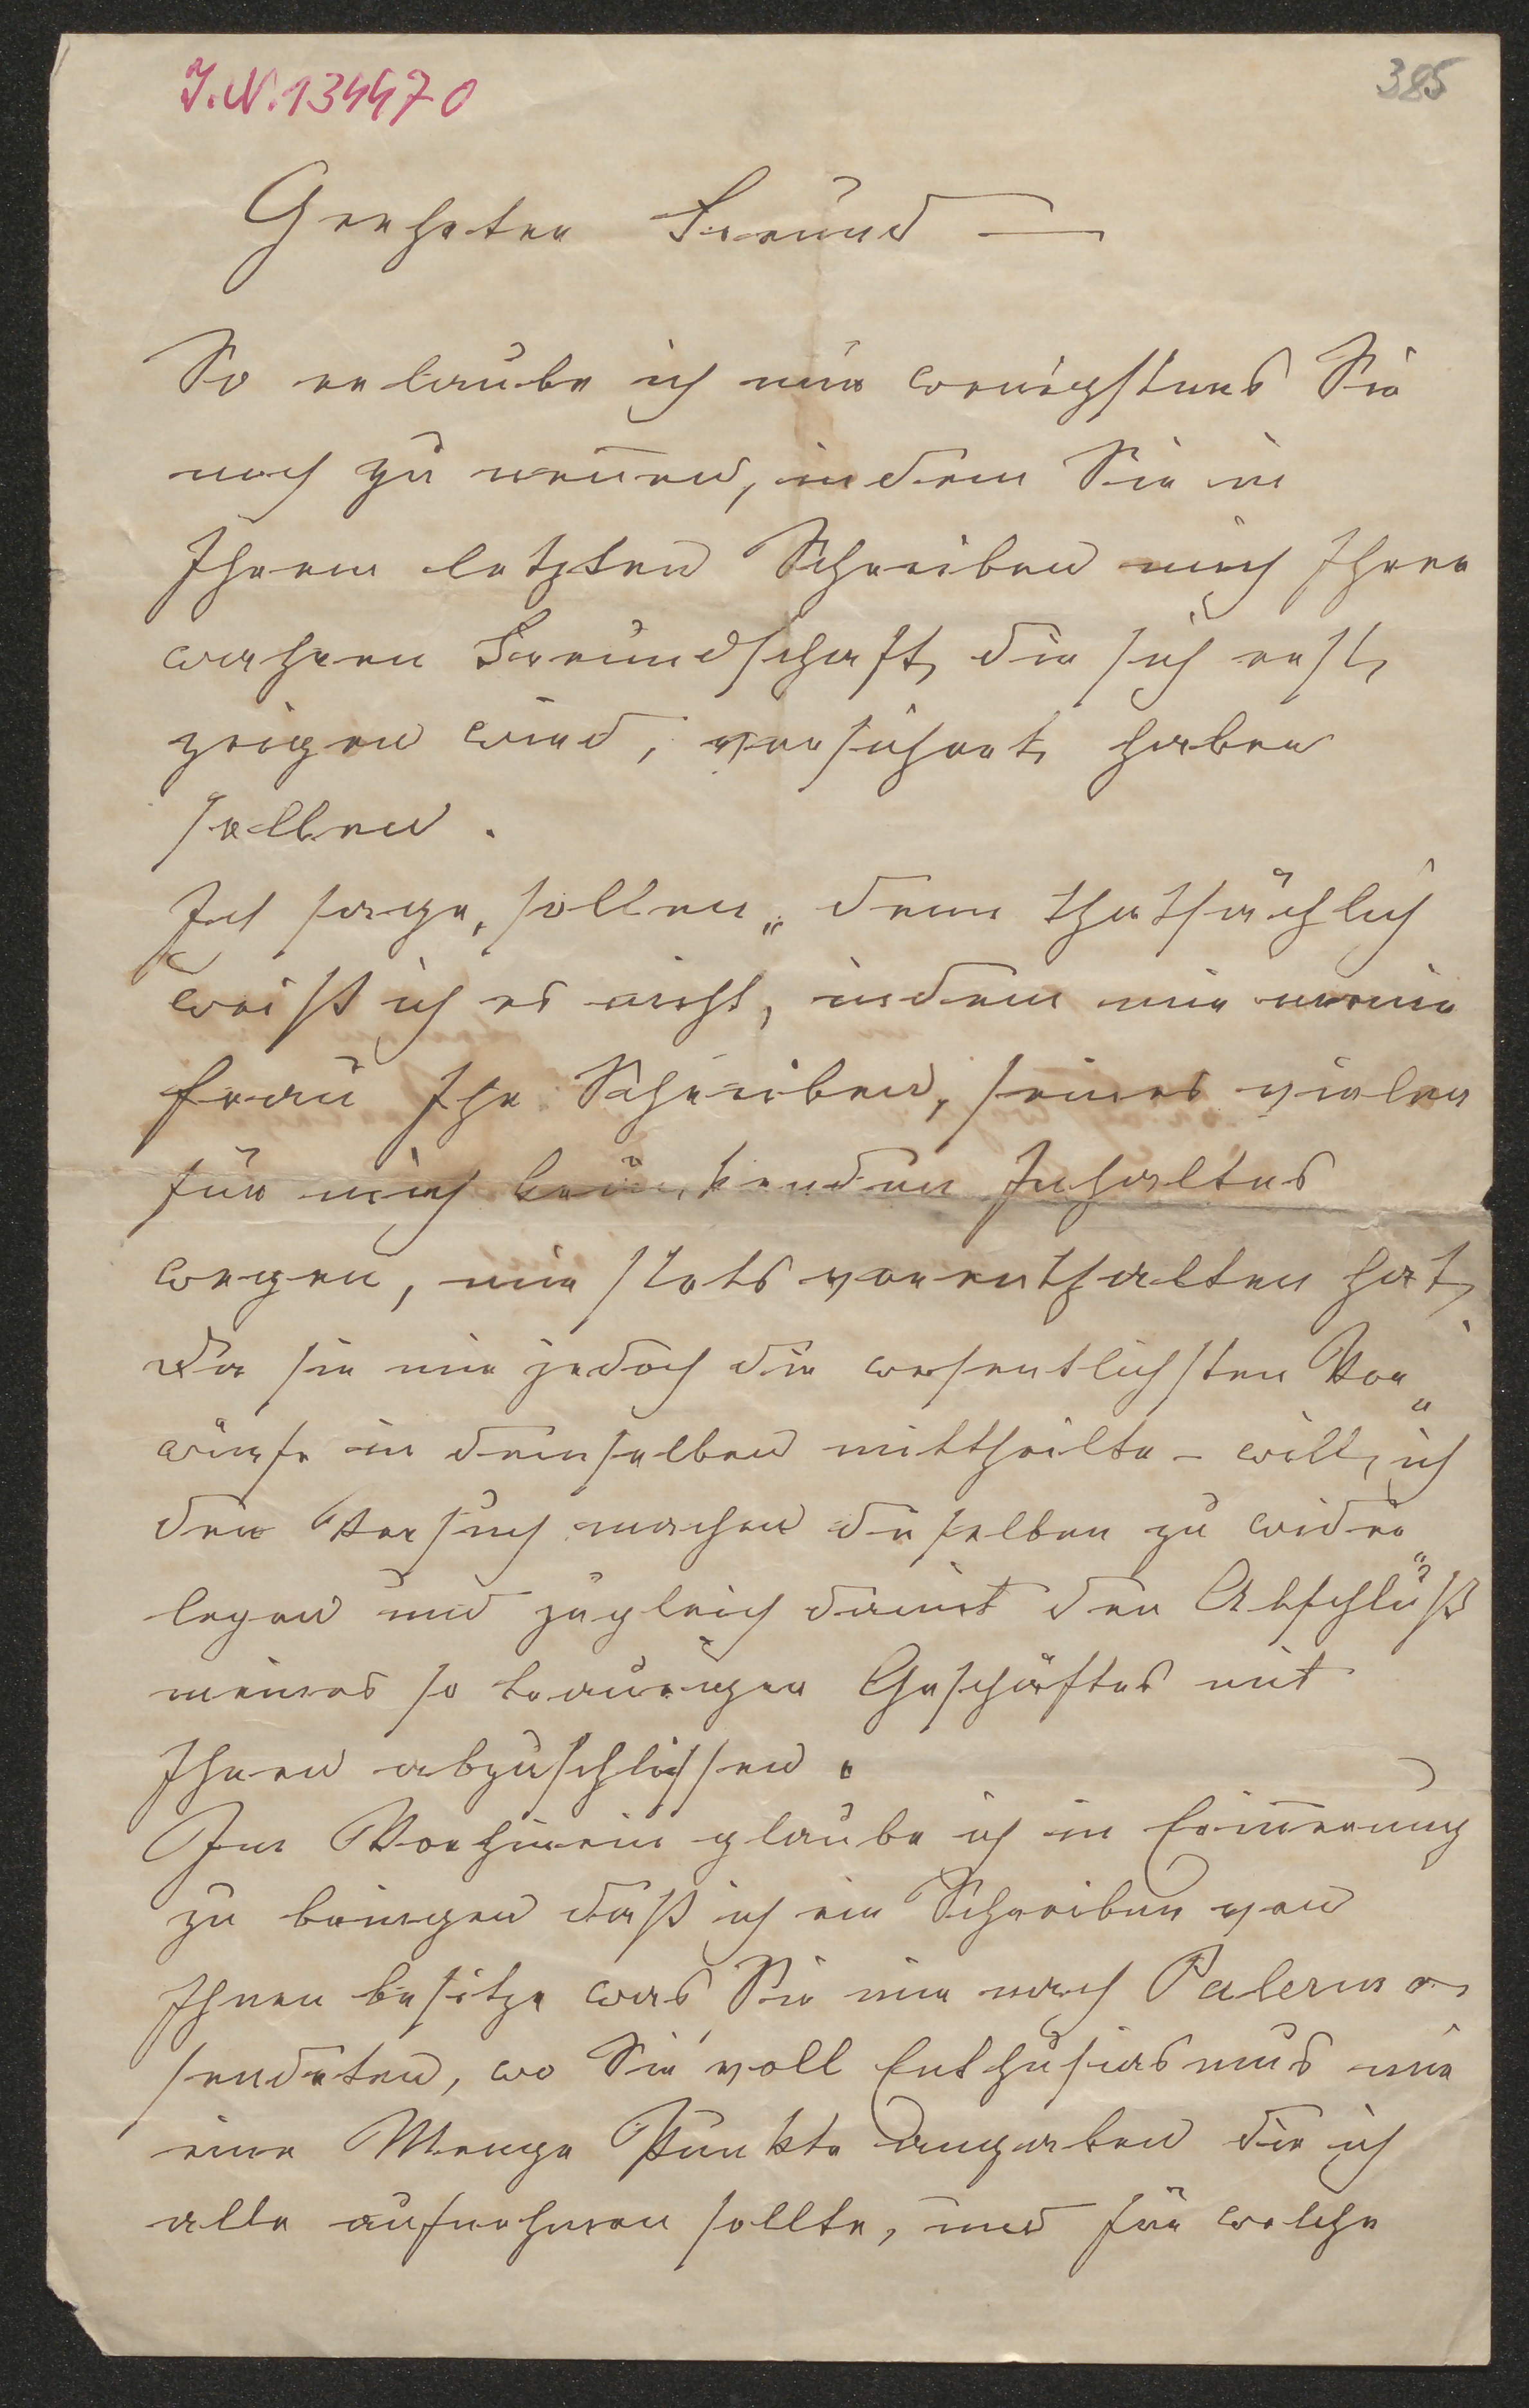 J.N. 134470
385
Geehrter Freund —
So erlaube ich mir wenigstens Sie
noch zu nennen, indem Sie in
Ihrem letzten Schreiben mich Ihrer
wahren Freundschaft, die sich erst
zeigen wird, versichert haben
sollen.
Ich sage „sollen„ denn thatsächlich
weiß ich es nicht, indem mir meine
Frau Ihr Schreiben, seines vielen
für mich kränkenden Inhaltes
wegen, mir stets vorenthalten hat,
da sie mir jedoch die wesentlichsten Vor„
würfe in demselben mittheilte – will ich
den Versuch machen dieselben zu wider„
legen und zugleich damit den Abschluß
meines so traurigen Geschäftes mit
Ihnen abzuschlissen.
Im Vorhinein glaube ich in Erinnerung
zu bringen daß ich ein Schreiben von
Ihnen besitze was Sie mir nach Palermo
sendeten, wo Sie voll Enthusiasmus mir
eine Menge Punkte angaben die ich
alle aufnehmen sollte, und für welche